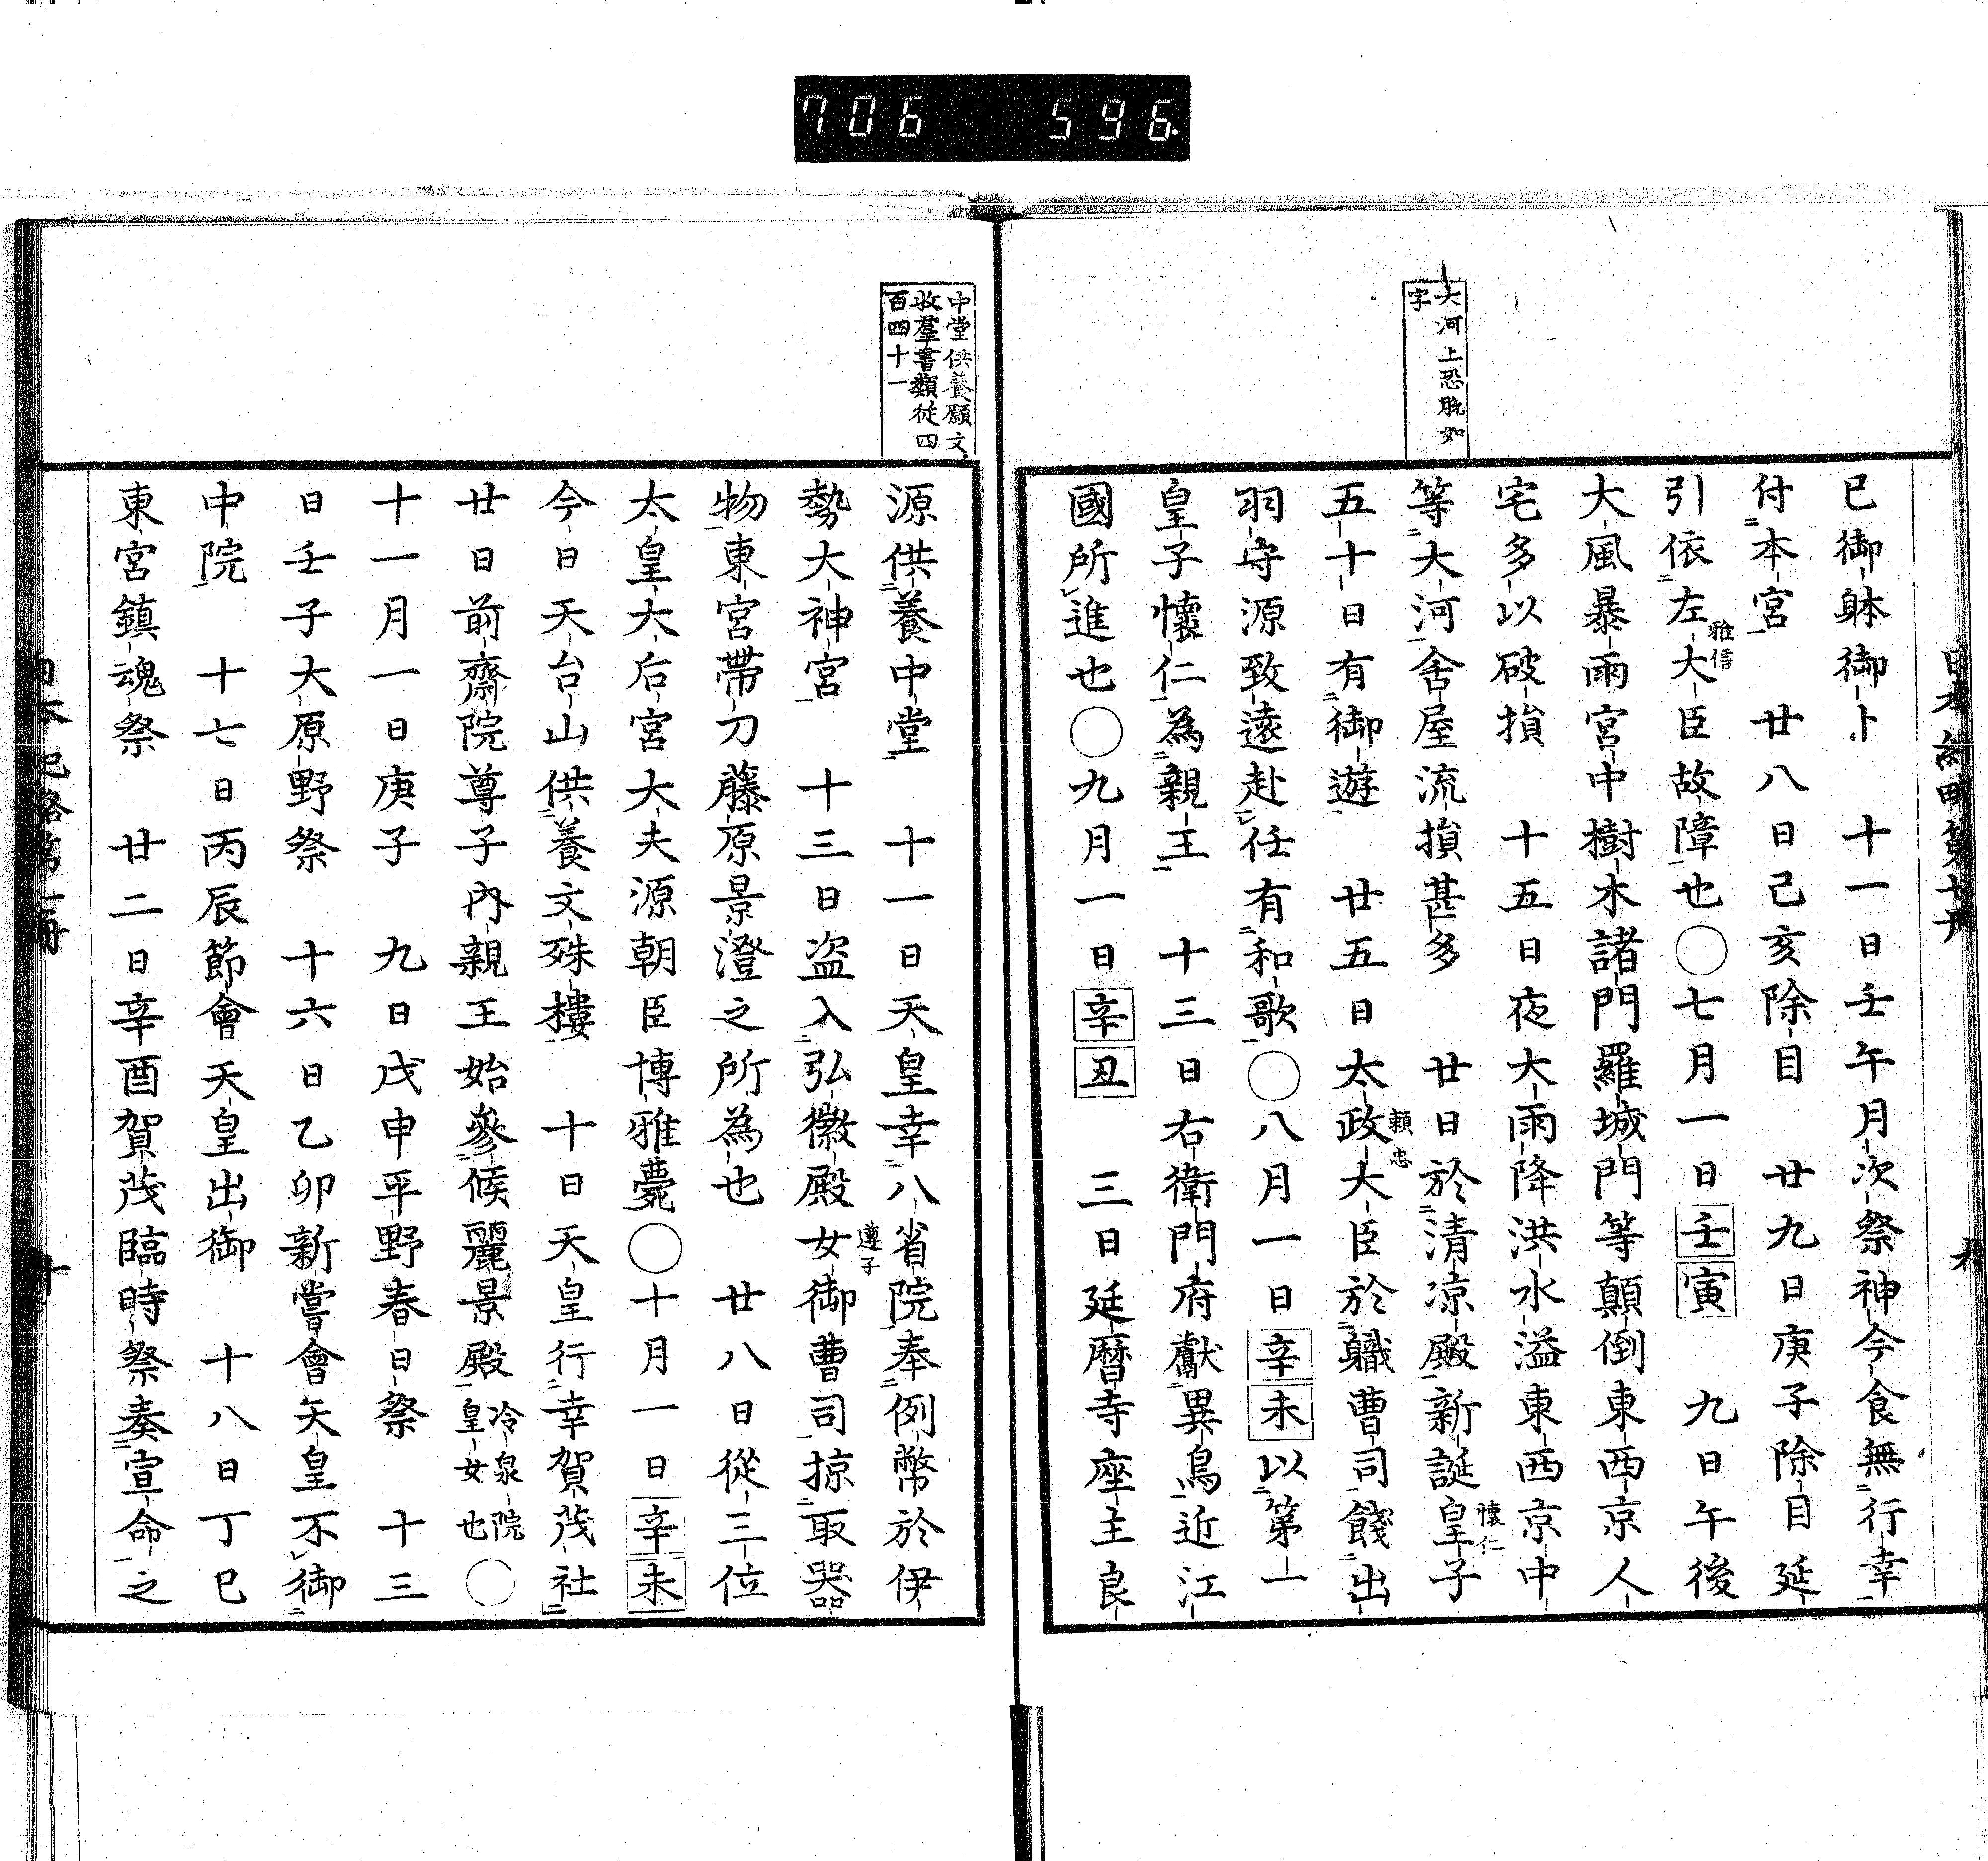 706 596.
大河上恐脱如
字
已御躰御卜　十一日壬午月次祭神今食無行幸
付本宮　廿八日己亥除目　廿九日庚子除目延
引依左大臣故障也〇七月一日壬寅　九日午後
雅信
大風暴雨宮中樹木諸門羅城門等顛倒東西京人
宅多以破損　十五日夜大雨降洪水溢東西京中
等大河舍屋流損甚多　廿日於清凉殿新誕皇子
懷仁
五十日有御遊　廿五日太政大臣於職曹司餞出
賴忠
羽守源致遠赴任有和歌〇八月一日辛未以第一
皇子懷仁為親王　十三日右衛門府獻異鳥近江
國所進也〇九月一日辛丑　三日延曆寺座主良
中堂供養願文
收羣書類從四
百四十一
源供養中堂　十一日天皇幸八省院奉例幣於伊
勢大神宮　十三日盜入弘徽殿女御曹司掠取器
遵子
物東宮帶刀藤原景澄之所為也　廿八日從三位
太皇大后宮大夫源朝臣博雅薨〇十月一日辛未
今日天台山供養文殊樓　十日天皇行幸賀茂社
廿日前齋院尊子內親王始參候麗景殿冷泉院皇女也〇
十一月一日庚子　九日戊申平野春日祭　十三
日壬子大原野祭　十六日乙卯新嘗會天皇不御
中院　十七日丙辰節會天皇出御　十八日丁巳
東宮鎮魂祭　廿二日辛酉賀茂臨時祭奏宣命之